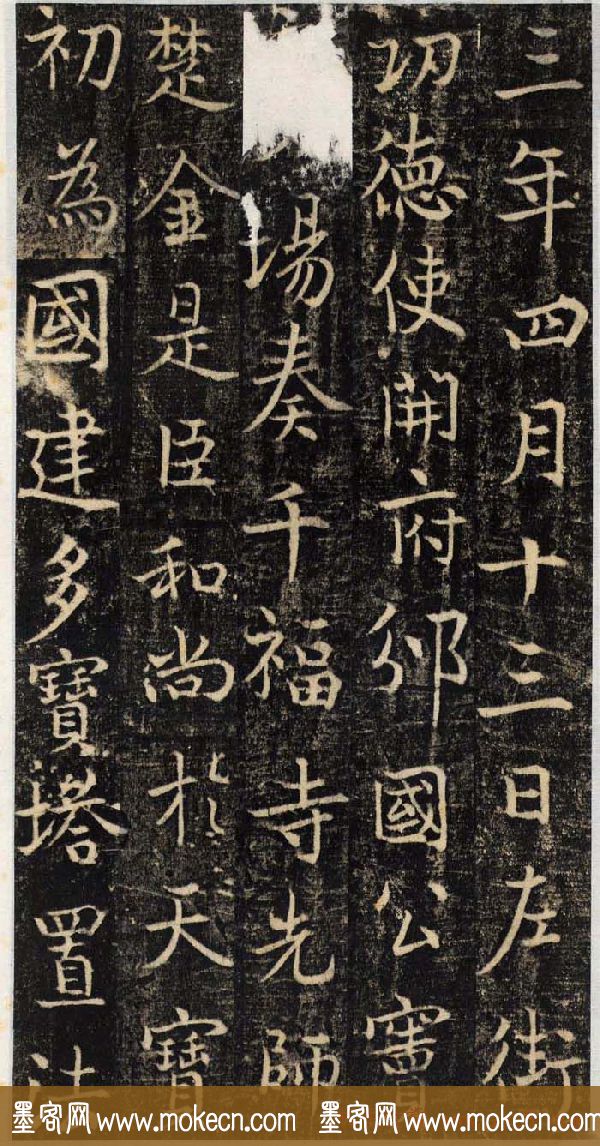 三年四月十三日左街
功德使開府邠國公竇
場奏千福寺先師
楚金是臣和尚於天寶
初為國建多寶塔置法
墨客网 www.mokecn.com 墨客网 www.mokecn.com